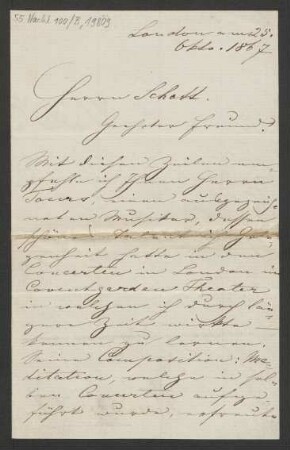 55 Nachl 100/B,
London am 23.
Okto. 1867
Herrn Schott.
Geehrter Freund!
Mit diesen Zeilen em-
pfehle ich Ihnen Herrn
Tours, einen ausgezeich-
neten Musiker, dessen
schönes Talent ich Gele-
genheit hatte in den
Concerten in London in
Coventgarden Theater
in welchen ich durch län-
gere Zeit wirkte
kennen zu lernen.
Seine Composition: Me-
ditation, welche in sel-
ben Concerten aufge-
führt wurde, erfreute